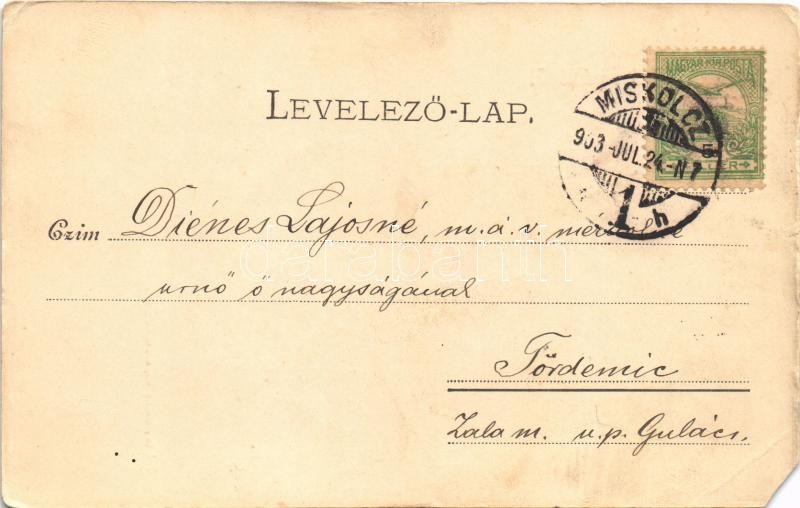 LEVELEZŐ-LAP.
MAGYAR KIR. POSTA
MISKOLCZ
903 JUL. 24. N 7
Czim Diénes Lajosné, m. á. v. mérnökné
urnő ő nagyságának
Tördemic
Zala m. u. p. Gulács.
darabanth